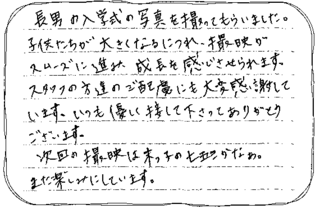 長男の入学式の写真を撮ってもらいました。
子供たちが大きくなるにつれ、撮影が
スムーズに進み、成長を感じさせられます。
スタッフの方達のご配慮にも大変感謝して
います。いつも優しく接して下さってありがとう
ございます。
次回の撮影は末っ子の七五三かなぁ。
また楽しみにしています。